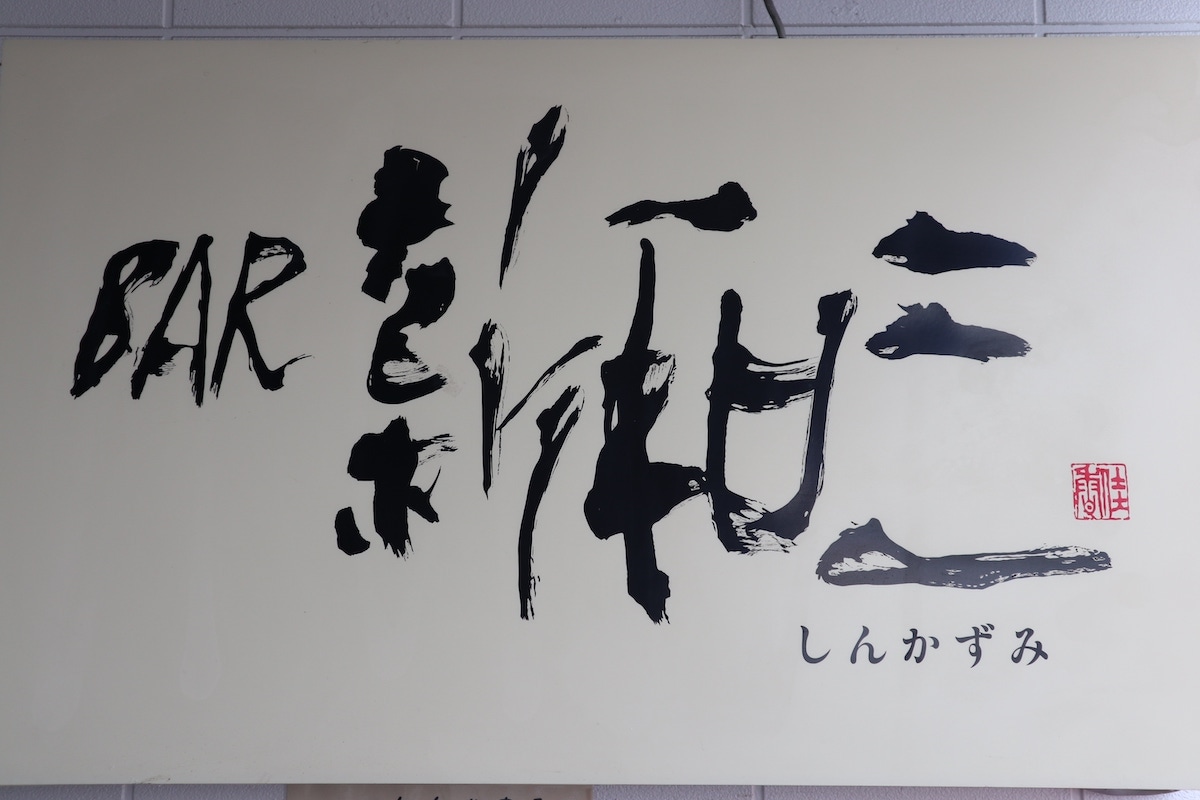 BAR 新和三
佳香
しんかずみ